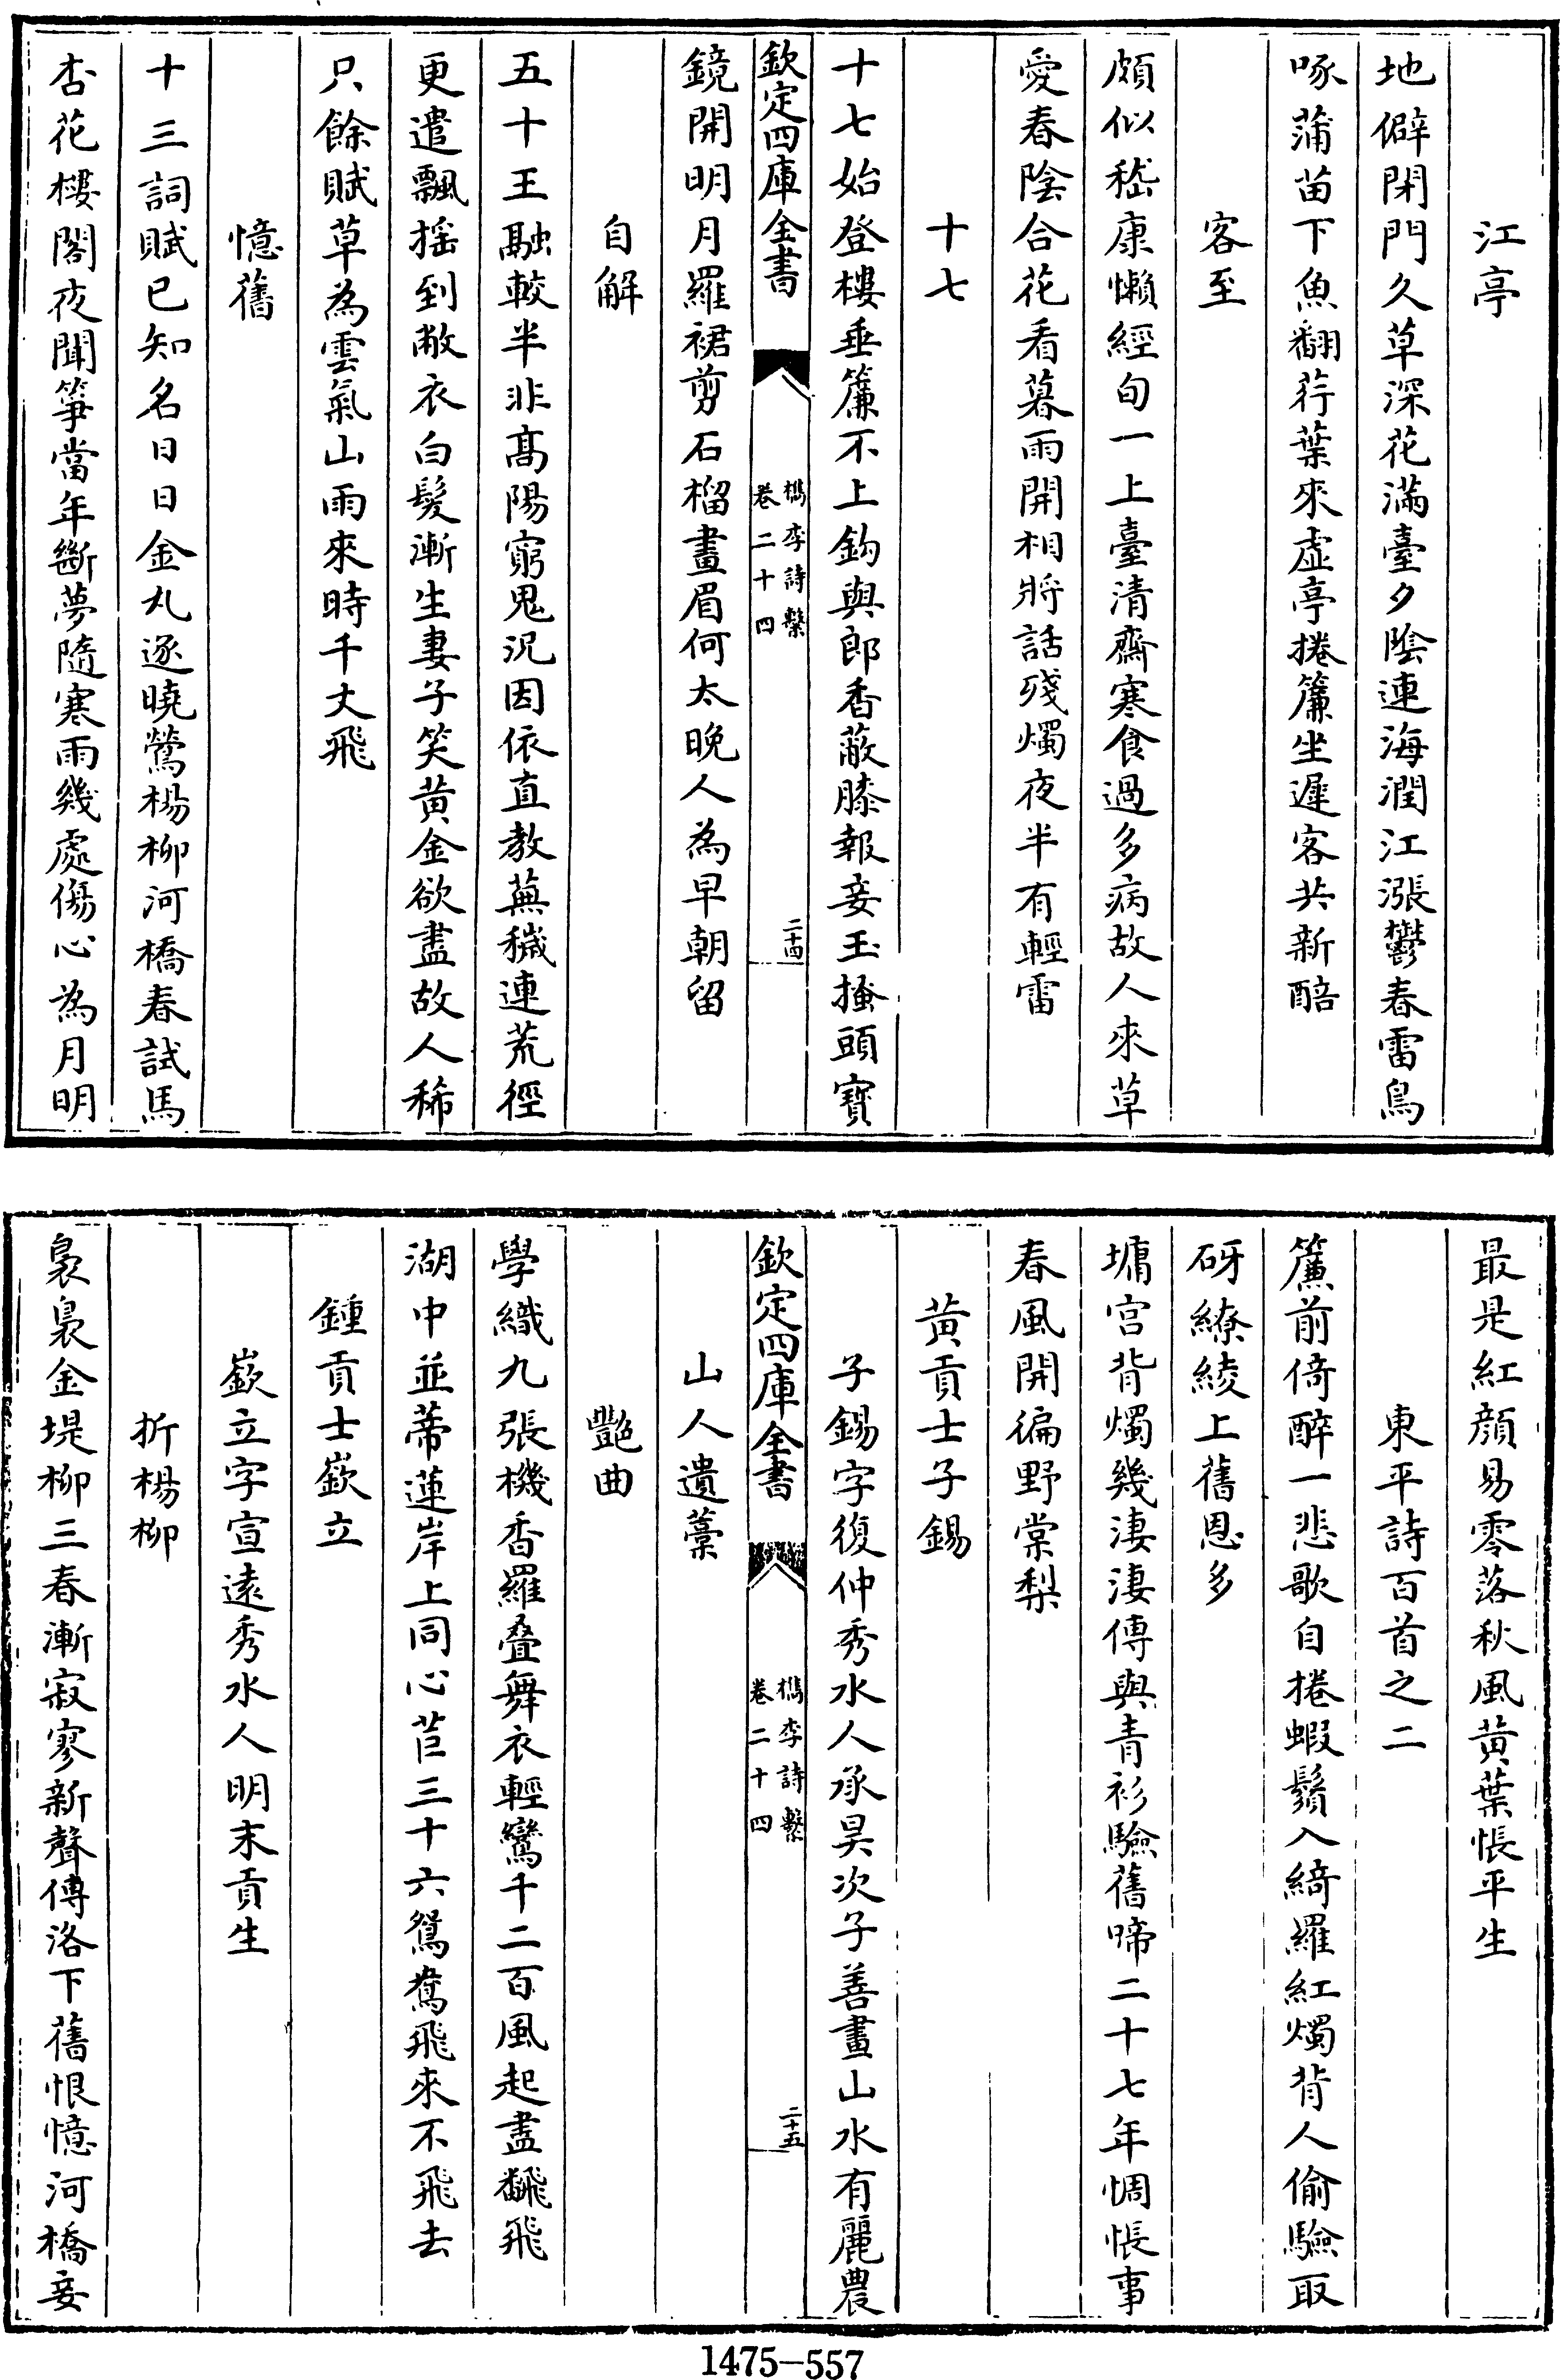 江亭
地僻閉門久草深花滿臺夕陰連海潤江漲鬱春雷鳥
啄蒲苗下魚翻荇葉來虛亭捲簾坐遲客共新醅
客至
頗似嵇康懶經旬一上臺清齋寒食過多病故人來草
愛春陰合花看暮雨開相將話殘燭夜半有輕雷
十七
十七始登樓垂簾不上鈎與郎香蔽膝報妾玉搔頭寶
欽定四庫全書
檇李詩繫
卷二十四
二十四
鏡開明月羅裙剪石榴畫眉何太晚人為早朝留
自解
五十王融較半非髙陽窮鬼況因依直教蕪穢連荒徑
更遣飄揺到敝衣白髮漸生妻子笑黄金欲盡故人稀
只餘賦草為雲氣山雨來時千丈飛
憶舊
十三詞賦已知名日日金丸逐曉鶯楊柳河橋春試馬
杏花樓閣夜聞箏當年斷夢隨寒雨幾處傷心為月明
最是紅顔易零落秋風黄葉悵平生
東平詩百首之二
簾前倚醉一悲歌自捲蝦鬚入綺羅紅燭背人偷驗取
砑繚綾上舊恩多
墉宮背燭幾淒淒傳與青衫驗舊啼二十七年惆悵事
春風開徧野棠梨
黄貢士子錫
子錫字復仲秀水人承昊次子善畫山水有麗農
欽定四庫全書
檇李詩繫
卷二十四
二十五
山人遺藁
艷曲
學織九張機香羅叠舞衣輕鸞千二百風起盡飜飛
湖中並蒂蓮岸上同心苣三十六鴛鴦飛來不飛去
鍾貢士嶔立
嶔立字宣遠秀水人明末貢生
折楊柳
裊裊金堤柳三春漸寂寥新聲傳洛下舊恨憶河橋妾
1475-557